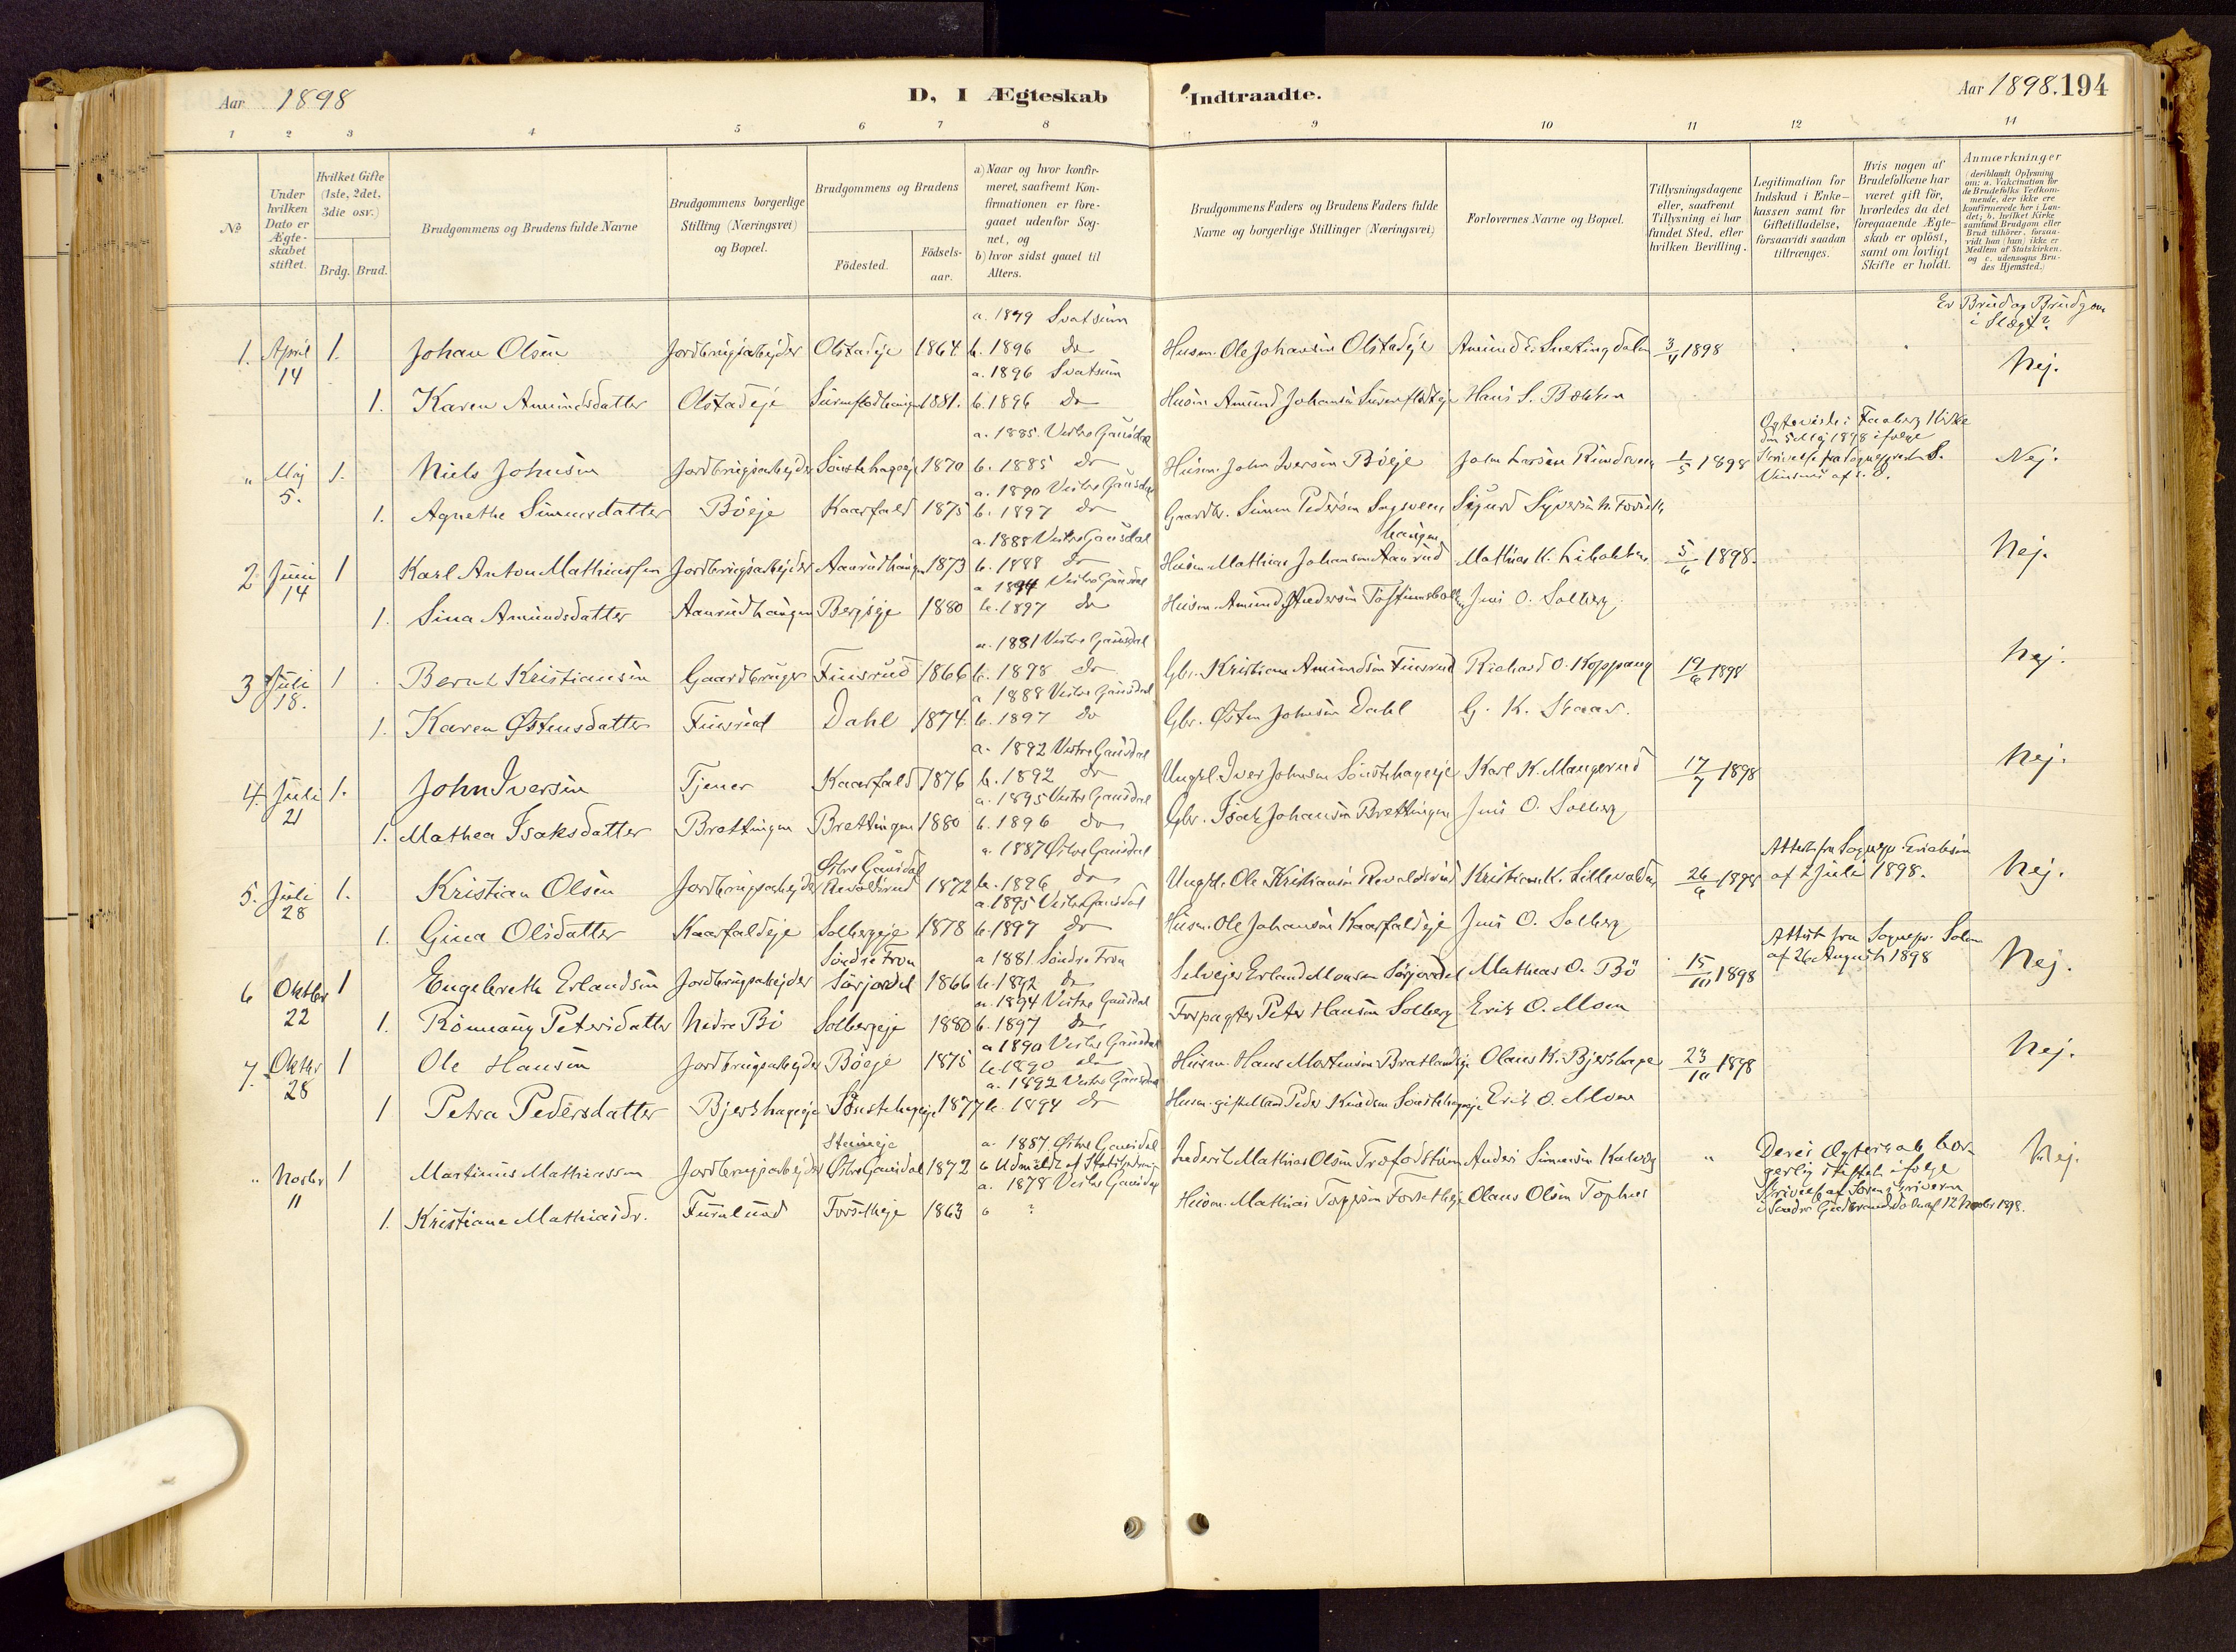 Aar 1898
D, I Ægteskab Indtraadte.
Aar 1898. 194
1 2 3 4 5 6 7 8 9 10 11 12 14
№
Under hvilken Dato er Ægteskabet stiftet.
Hvilket Gifte (1ste, 2det, 3die osv.)
Brdg. Brud.
Brudgommens og Brudens fulde Navne
Brudgommens borgerlige Stilling (Næringsvei) og Bopæl.
Brudgommens og Brudens
Födested.
Födselsaar.
a) Naar og hvor konfirmeret, saafremt Konfirmationen er foregaaet udenfor Sognet, og
b) hvor sidst gaaet til Alters.
Brudgommens Faders og Brudens Faders fulde Navne og borgerlige Stillinger (Næringsvei)
Forlovernes Navne og Bopæl.
Tillysningsdagene eller, saafremt Tillysning ei har fundet Sted, efter hvilken Bevilling.
Legitimation for Indskud i Enkekassen samt for Giftetilladelse, forsaavidt saadan tiltrænges.
Hvis nogen af Brudefolkene har været gift för, hvorledes da det foregaaende Ægteskab er oplöst, samt om lovligt Skifte er holdt.
Anmærkninger (deriblandt Oplysning om: a. Vakcination for de Brudefolks Vedkommende, der ikke ere konfirmerede her i Landet; b. hvilket Kirkesamfund Brudgom eller Brud tilhörer, forsaavidt han (hun) ikke er Medlem af Statskirken. og c. udensogns Brudes Hjemsted.)
Er Brud og Brudgom i Slægt?
a. 1879 Svatsum
1. April 14 1. Johan Olsen Jordbrugsarbejder Olstadeje 1864 b. 1896 do Husm. Ole Johansen Olstadeje Amund E. Svetingdalen 3/4 1898 Nej.
a. 1896 Svatsum
1. Karen Amundsdatter Olstadeje 1881. b. 1896 do Husm. Amund Johansen Hans S. Bækken
a. 1885. Vestre Gausdal
" Maj 5. 1. Niels Johnsen Jordbrugsarbejder Sönstehageeje 1870 b. 1885 do Husm. John Iversen Böeje John Larsen 1/5 1898 Ægteviede i Faaberg Kirke den 5 Maj 1898 ifølge Skrivelse fra Sognepresten S. af s. D. Nej.
a. 1890 Vestre Gausdal
1. Agnethe Simensdatter Böeje Kaarfald 1875 b. 1897 do Gaardbr. Simen Pedersen Sigurd Syversen
a. 1888 Vestre Gausdal
2 Juni 14 1 Karl Anton Mathiassen Jordbrugsarbejder Aanrudhaugen 1873 b. 1888 do Husm. Mathias Johansen Aanrudhaugen Mathias K. Libakken 5/6 1898. Nej.
a. 1894 Vestre Gausdal
1. Sina Amundsdatter Aanrudhaugen Bergseje 1880 b. 1897 do Husm. Amund Andersen Jens O. Solberg
a. 1881 Vestre Gausdal
3 Juli 18. 1 Bernt Kristiansen Gaardbruger Finsrud 1866 b. 1898 do Gbr. Kristian Amundsen Finsrud Richard O. Koppang 19/6 1898 Nej.
a. 1888 Vestre Gausdal
1. Karen Østensdatter Finsrud Dahl 1874. b. 1897 do Gbr. Østen Johnsen Dahl G. K. Skaar.
a. 1892 Vestre Gausdal
4. Juli 21 1. John Iversen Tjener Kaarfald 1876 b. 1892 do Ungkl. Iver Johnsen Sönstehageeje Karl K. Mangerud 17/7 1898 Nej.
a. 1895 Vestre Gausdal
1. Mathea Isaksdatter Brettingen Brettingen 1880 b. 1896 do Gbr. Isak Johansen Brettingen Jens O. Solberg
a. 1887 Østre Gausdal
5. Juli 28 1. Kristian Olsen Jordbrugsarbejder Østre Gausdal Revoldsrud 1872 b. 1896 do Ungkl. Ole Kristiansen Revoldsrud Kristian K. Lillevolden 26/6 1898 Attest fra Sognepr. Erichsen af 2 Juli 1898. Nej.
a. 1895 Vestre Gausdal
1. Gina Olsdatter Kaarfaldeje Solbergeje 1878 b. 1897 do Husm. Ole Johansen Kaarfaldeje Jens O. Solberg
a 1881 Söndre Fron
6 Oktbr 22 1 Engebreth Erlandsen Jordbrugsarbejder Söndre Fron Sörjordet 1866 b. 1892 do Selvejer Erland Monsen Sørjordet Mathias O. Bö 15/10 1898 Attest fra Sognepr. af 26 August 1898 Nej.
a. 1894 Vestre Gausdal
1. Rönnaug Petersdatter Nedre Bö Solbergeje 1880 b. 1897 do Forpagter Peter Hansen Solberg Erik O. Moen
a 1890 Vestre Gausdal
7. Oktbr 28 1 Ole Hansen Jordbrugsarbejder Böeje 1875 b. 1890 do Husm. Hans Mortensen Bratlandseje Olaus K. Bjershage 23/10 1898 Nej.
a. 1892 Vestre Gausdal
1 Petra Pedersdatter Bjershageeje Sönstehageeje 1877 b. 1894 do Husm. Peder Knudsen Sönstehageeje Erik O. Moen
a. 1887. Østre Gausdal
" Novbr 11 1 Martinus Mathiassen Jordbrugsarbejder Steineeje Østre Gausdal 1872 b Udmeldt af Statskirken Inderst Mathias Olsen Anders Simensen " Deres Ægteskab borgerlig stiftet ifølge Skrivelse af Sorenskriveren i Søndre Gudbrandsdalen af 12 Novbr 1898. Nej.
a. 1878 Vestre Gausdal
1. Kristiane Mathiasdr. Furulund Forsetheje 1863 b ? Husm. Mathias Forsetheje Olaus Olsen Tophus